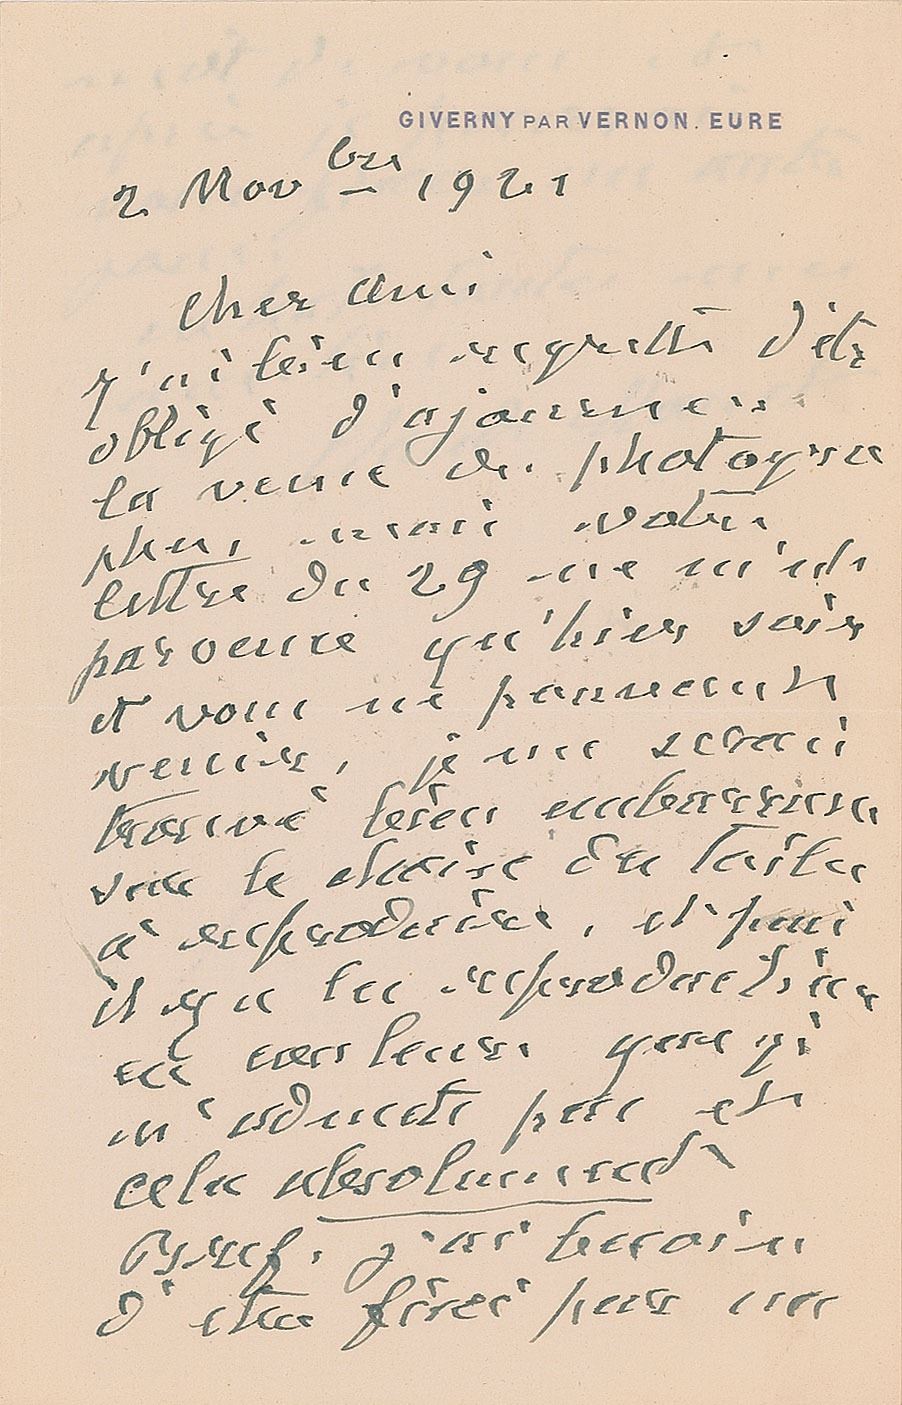 GIVERNY PAR VERNON. EURE
2 Nov bre 1921
Cher ami
j'ai bien regretté d'être
obligé d'ajourner
la venue du photogra
phe, mais votre
lettre du 29 ne m'est
parvenue qu'hier soir
et vous ne pouvant
venir, je me serais
trouvé bien embarrassé
sur le choix des toiles
à reproduire, et puis
il y a les reproductions
en couleurs que je
n'admets pas et
cela absolument
Bref, j'ai besoin
d'être fixé par un